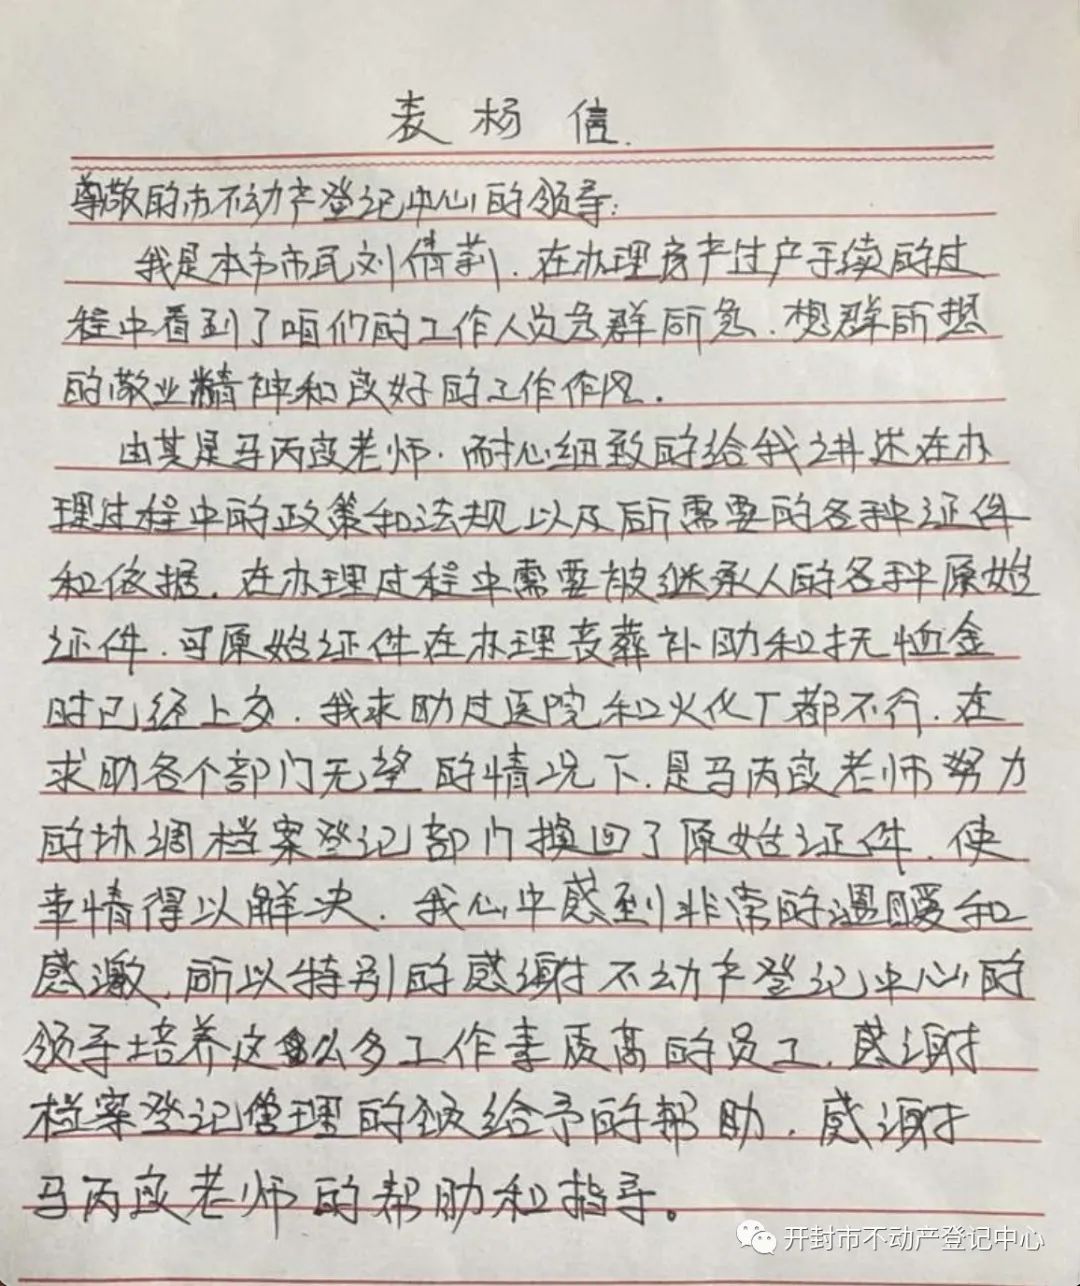 表杨信.
尊敬的市不动产登记中心的领导:
我是本市市民刘倩莉.在办理房产过户手续的过
程中看到了咱们的工作人员急群所急.想群所想
的敬业精神和良好的工作作风.
由其是马丙段老师.耐心细致的给我讲述在办
理过程中的政策和法规以及所需要的各种证件
和依据.在办理过程中需要被继承人的各种原始
证件.可原始证件在办理丧葬补助和抚恤金
时已经上交.我求助过医院和火化厂都不行.在
求助各个部门无望的情况下.是马丙段老师努力
的协调档案登记部门换回了原始证件.使
事情得以解决.我心中感到非常的温暖和
感激.所以特别的感谢不动产登记中心的
领导培养这么多工作素质高的员工.感谢
档案登记管理的给予的帮助.感谢
马丙段老师的帮助和指导。
开封市不动产登记中心